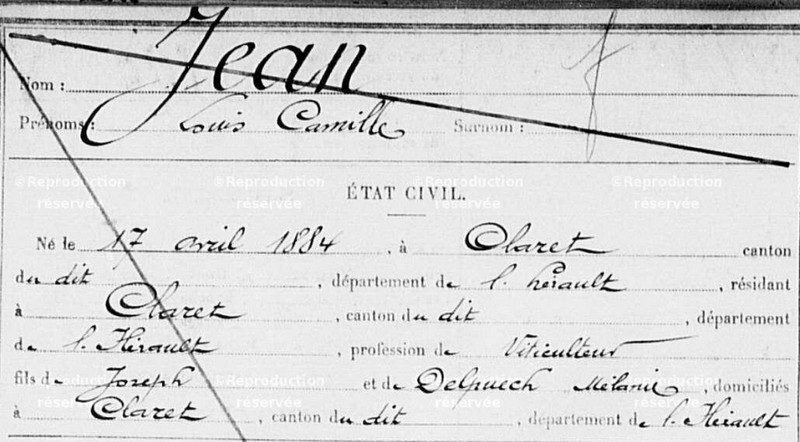 Nom : Jean
Prénoms : Louis Camille Surnom :
©Reproduction réservée ©Reproduction réservée ©Reproduction réservée ©Reproduction réservée
ÉTAT CIVIL.
Né le 17 avril 1884, à Claret canton
du dit, département de l'hérault, résidant
à Claret, canton du dit, département
de l'Hérault, profession de Viticulteur
fils de Joseph et de Delpuech Mélanie, domiciliés
©Reproduction réservée ©Reproduction réservée ©Reproduction réservée ©Reproduction réservée
à Claret, canton du dit, département de l'Hérault